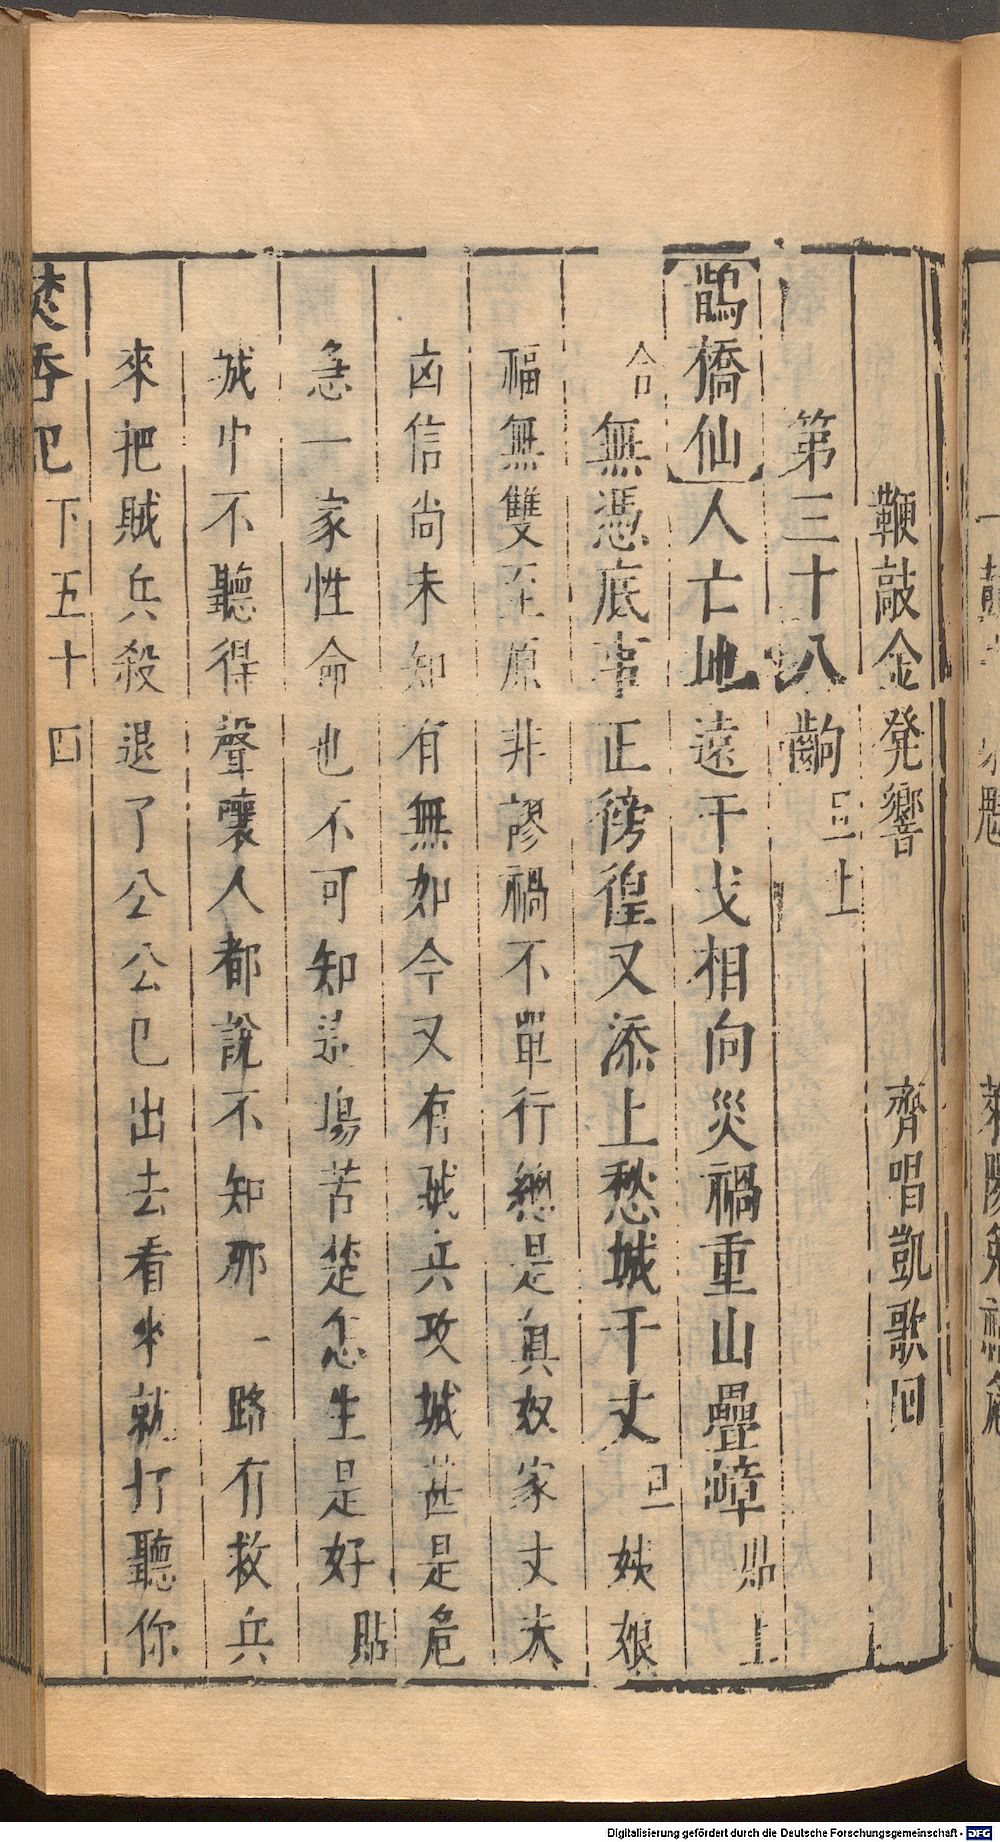 鞭敲金發響　齊唱凱歌囘
第三十八齣旦上
鵲橋仙人亡地遠干戈相向災禍重山疊嶂貼上
合無憑底事正徬徨又添上愁城千丈旦姣娘
福無雙至原非謬禍不單行總是眞奴家丈夫
凶信尚未知有無如今又有賊兵攻城甚是危
急一家性命也不可知這場苦楚怎生是好貼
城中不聽得聲嚷人都說不知那一路有救兵
來把賊兵殺退了公公已出去看來就打聽你
焚香記下五十四
Digitalisierung gefördert durch die Deutsche Forschungsgemeinschaft - DFG